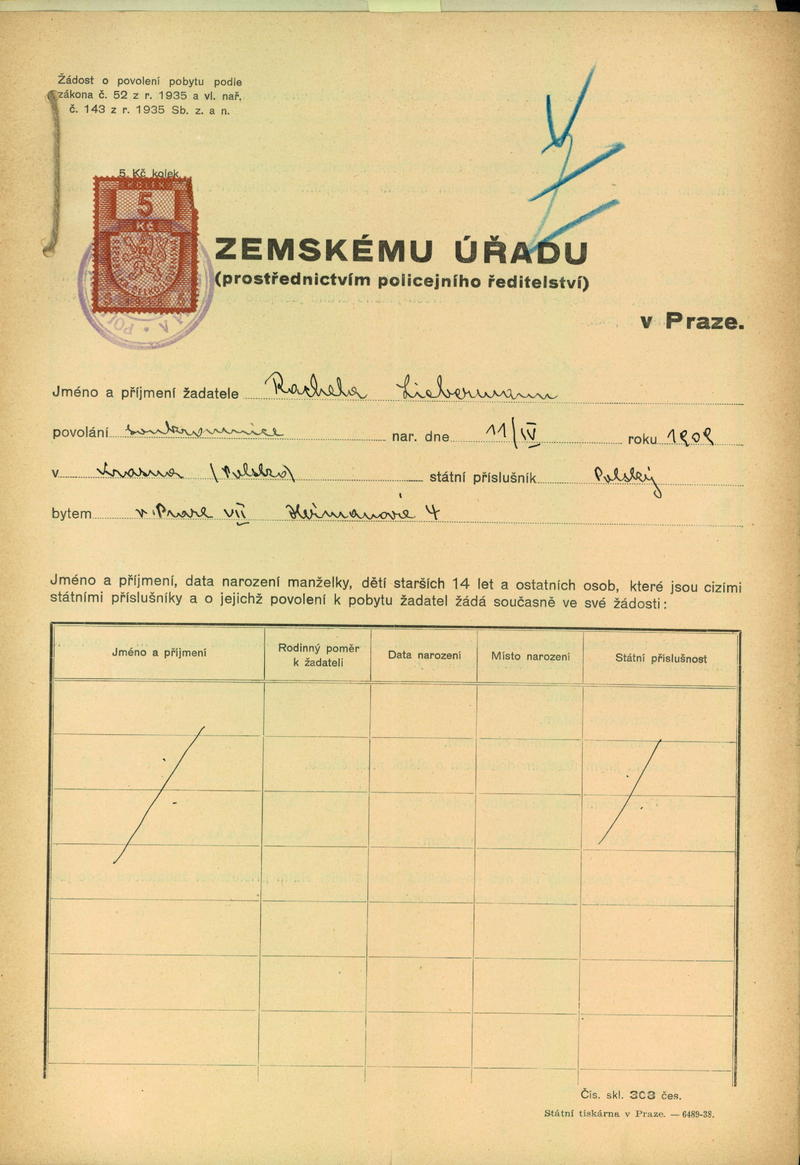 Žádost o povolení pobytu podle
zákona č. 52 z r. 1935 a vl. nař.
č. 143 z r. 1935 Sb. z. a n.
5 Kč kolek
KOLEK
5
Kč
ZEMSKÉMU ÚŘADU
(prostřednictvím policejního ředitelství)
v Praze.
Jméno a příjmení žadatele Rachela Liebermann
povolání nar. dne 11/IV roku 1909
v (Polsko) státní příslušník Polský
bytem v Praze VII Heřmanova 4
Jméno a příjmení, data narození manželky, dětí starších 14 let a ostatních osob, které jsou cizími
státními příslušníky a o jejichž povolení k pobytu žadatel žádá současně ve své žádosti:
Jméno a příjmení Rodinný poměr k žadateli Data narození Místo narození Státní příslušnost
Čís. skl. 303 čes.
Státní tiskárna v Praze. — 6489-38.